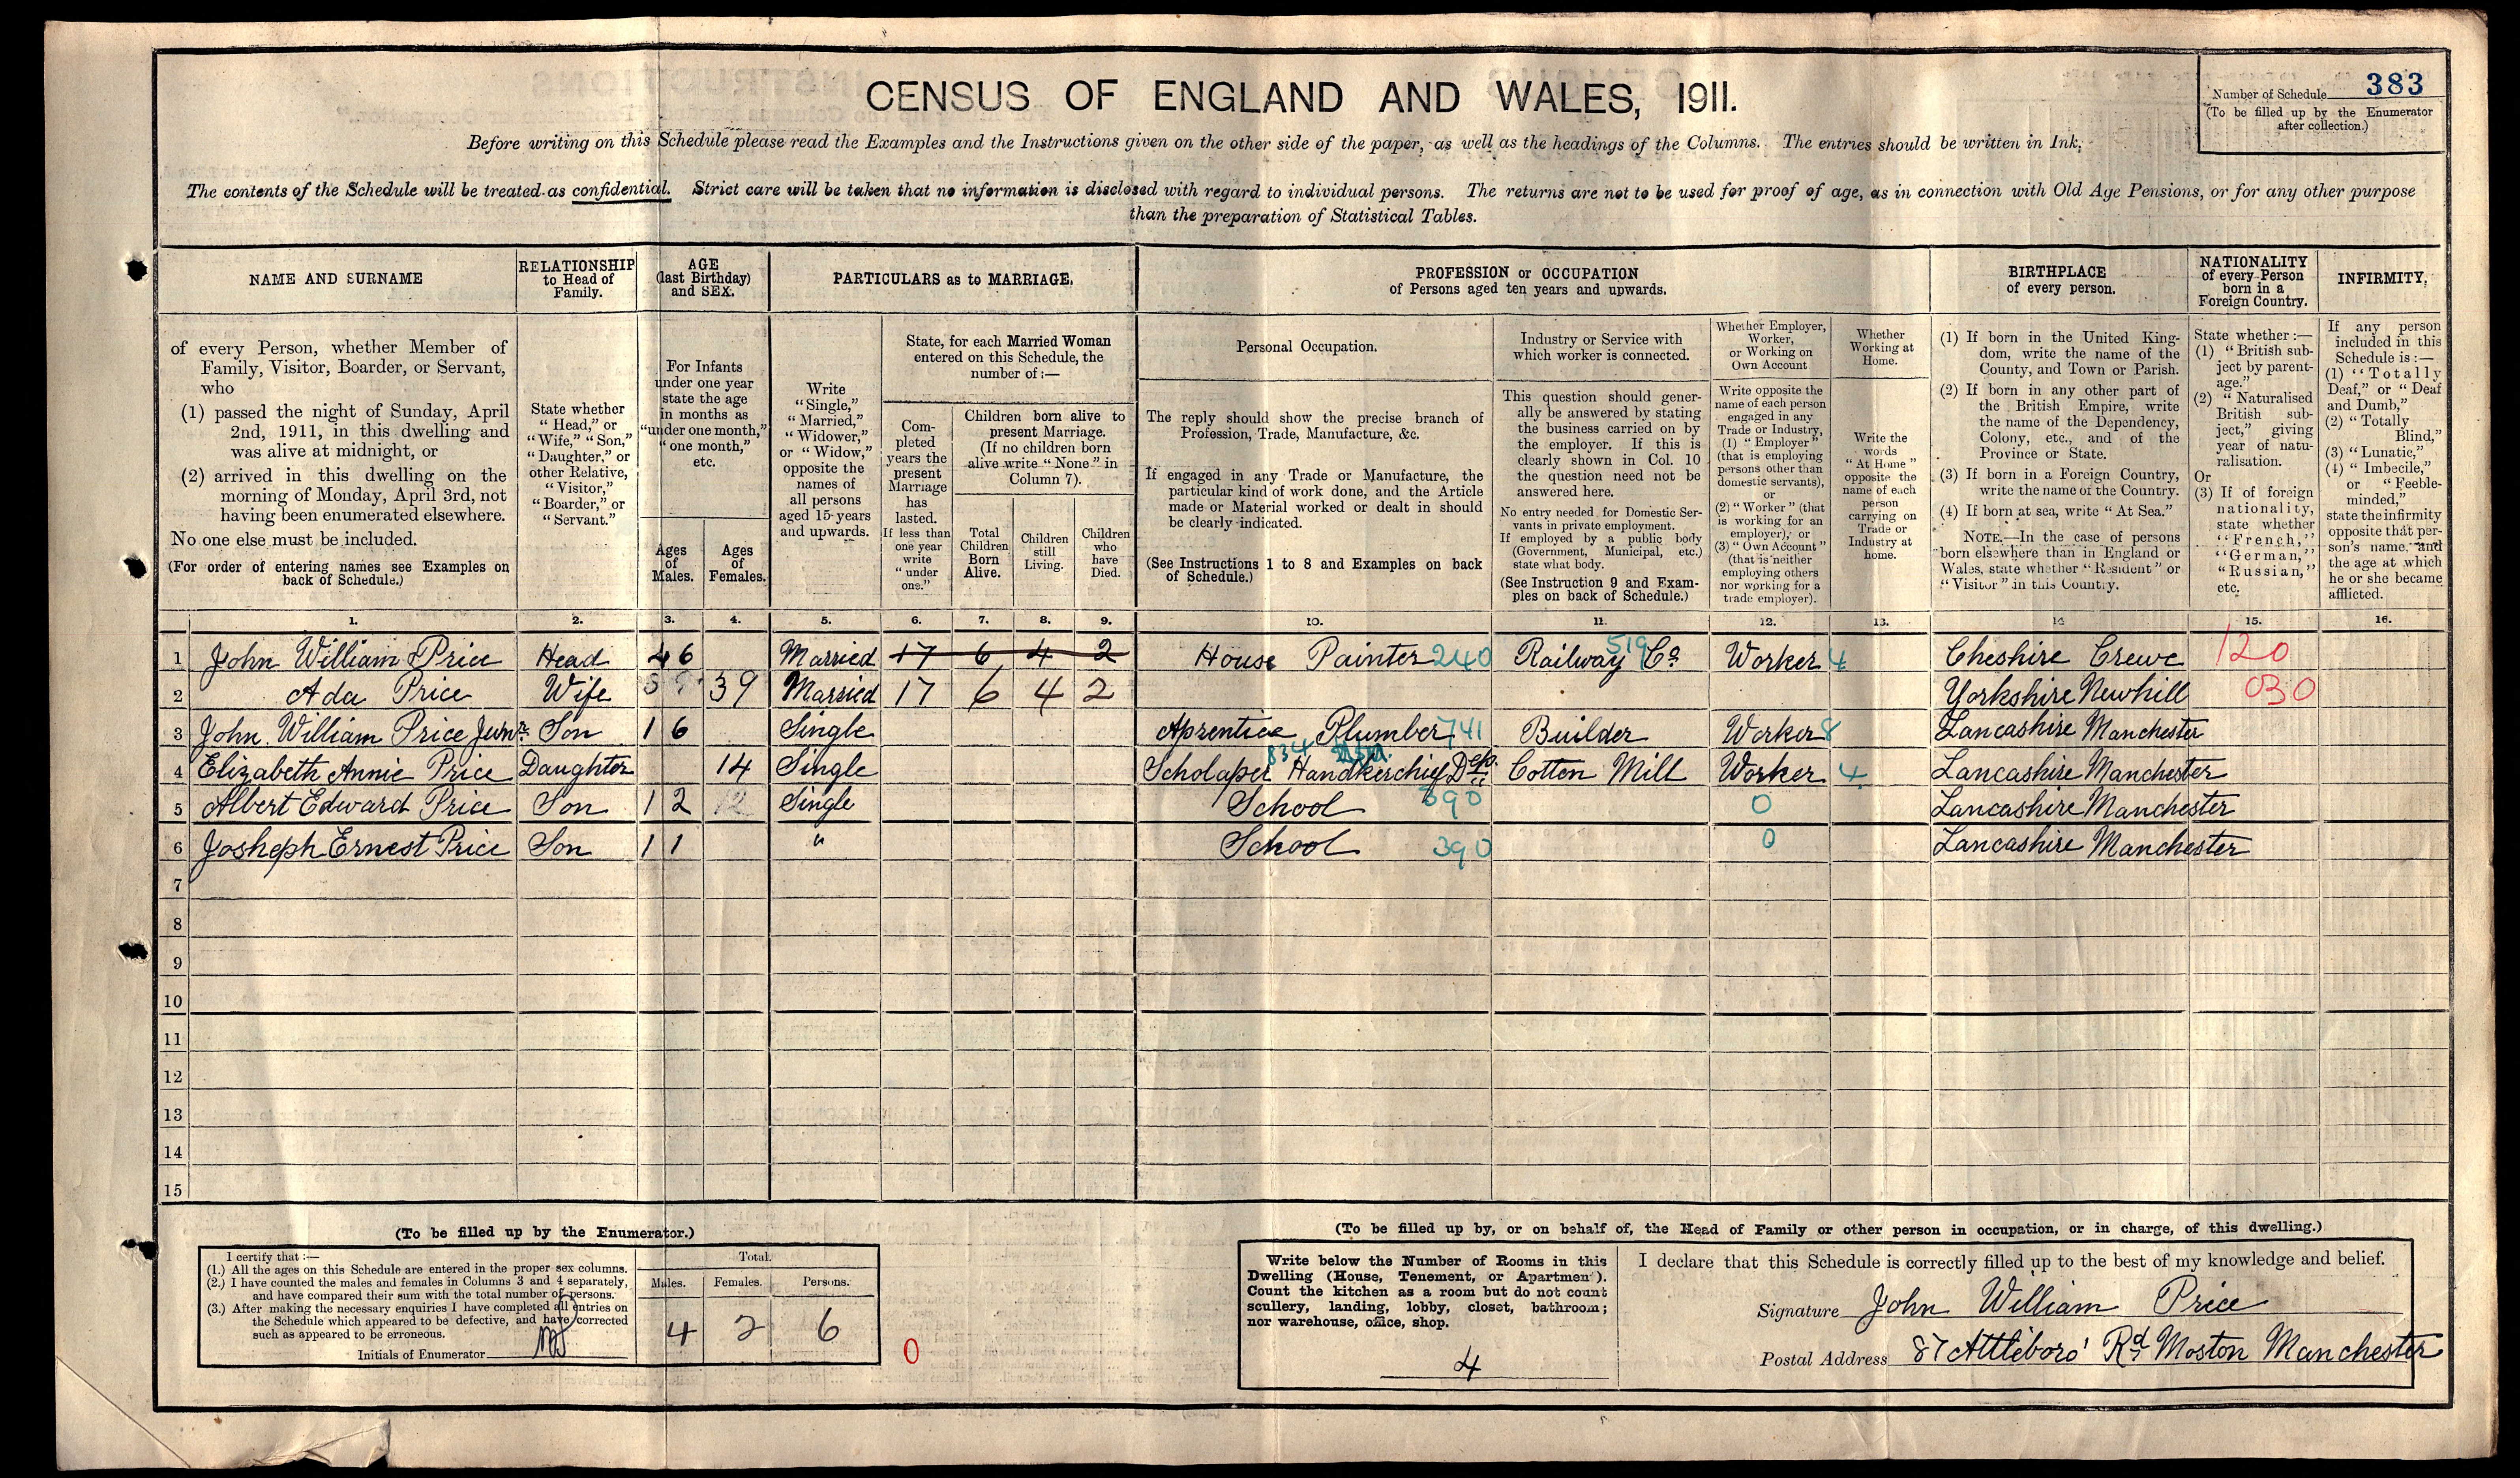 383
Number of Schedule
(To be filled up by the Enumerator after collection.)
CENSUS OF ENGLAND AND WALES, 1911.
Before writing on this Schedule please read the Examples and the Instructions given on the other side of the paper, as well as the headings of the Columns. The entries should be written in Ink.
The contents of the Schedule will be treated as confidential. Strict care will be taken that no information is disclosed with regard to individual persons. The returns are not to be used for proof of age, as in connection with Old Age Pensions, or for any other purpose
than the preparation of Statistical Tables.
NAME AND SURNAME
RELATIONSHIP to Head of Family.
AGE (last Birthday) and SEX.
PARTICULARS as to MARRIAGE.
PROFESSION or OCCUPATION of Persons aged ten years and upwards.
BIRTHPLACE of every person.
NATIONALITY of every Person born in a Foreign Country.
INFIRMITY.
of every Person, whether Member of
Family, Visitor, Boarder, or Servant,
who
(1) passed the night of Sunday, April
2nd, 1911, in this dwelling and
was alive at midnight, or
(2) arrived in this dwelling on the
morning of Monday, April 3rd, not
having been enumerated elsewhere.
No one else must be included.
(For order of entering names see Examples on
back of Schedule.)
State whether
"Head," or
"Wife," "Son,"
"Daughter," or
other Relative,
"Visitor,"
"Boarder," or
"Servant."
For Infants
under one year
state the age
in months as
"under one month,"
"one month,"
etc.
Ages of Males.
Ages of Females.
Write
"Single,"
"Married,"
"Widower,"
or "Widow,"
opposite the
names of
all persons
aged 15 years
and upwards.
State, for each Married Woman
entered on this Schedule, the
number of:—
Completed
years the
present
Marriage
has
lasted.
If less than
one year
write
"under
one."
Children born alive to
present Marriage.
(If no children born
alive write "None" in
Column 7).
Total Children Born Alive.
Children still Living.
Children who have Died.
Personal Occupation.
The reply should show the precise branch of
Profession, Trade, Manufacture, &c.
If engaged in any Trade or Manufacture, the
particular kind of work done, and the Article
made or Material worked or dealt in should
be clearly indicated.
(See Instructions 1 to 8 and Examples on back
of Schedule.)
Industry or Service with
which worker is connected.
This question should gener-
ally be answered by stating
the business carried on by
the employer. If this is
clearly shown in Col. 10
the question need not be
answered here.
No entry needed for Domestic Ser-
vants in private employment.
If employed by a public body
(Government, Municipal, etc.)
state what body.
(See Instruction 9 and Exam-
ples on back of Schedule.)
Whether Employer,
Worker,
or Working on
Own Account
Write opposite the
name of each person
engaged in any
Trade or Industry,
(1) "Employer"
(that is employing
persons other than
domestic servants),
or
(2) "Worker" (that
is working for an
employer), or
(3) "Own Account"
(that is neither
employing others
nor working for a
trade employer).
Whether
Working at
Home.
Write the
words
"At Home"
opposite the
name of each
person
carrying on
Trade or
Industry at
home.
(1) If born in the United King-
dom, write the name of the
County, and Town or Parish.
(2) If born in any other part of
the British Empire, write
the name of the Dependency,
Colony, etc., and of the
Province or State.
(3) If born in a Foreign Country,
write the name of the Country.
(4) If born at sea, write "At Sea."
NOTE.—In the case of persons
born elsewhere than in England or
Wales, state whether "Resident" or
"Visitor" in this Country.
State whether:—
(1) "British sub-
ject by parent-
age."
(2) "Naturalised
British sub-
ject," giving
year of natu-
ralisation.
Or
(3) If of foreign
nationality,
state whether
"French,"
"German,"
"Russian,"
etc.
If any person
included in this
Schedule is:—
(1) "Totally
Deaf," or "Deaf
and Dumb,"
(2) "Totally
Blind,"
(3) "Lunatic,"
(4) "Imbecile,"
or "Feeble-
minded,"
state the infirmity
opposite that per-
son's name, and
the age at which
he or she became
afflicted.
1. 2. 3. 4. 5. 6. 7. 8. 9. 10. 11. 12. 13. 14 15. 16.
1 John William Price Head 46 Married 17 6 4 2 House Painter 240 Railway Co 519 Worker 4 Cheshire Crewe 120
2 Ada Price Wife 39 Married 17 6 4 2 Yorkshire Newhill 030
3 John William Price Junr Son 16 Single Aprentice Plumber 741 Builder Worker 8 Lancashire Manchester
834
4 Elizabeth Annie Price Daughter 14 Single Scholaper Handkerchief Dep. Cotton Mill Worker 4 Lancashire Manchester
5 Albert Edward Price Son 12 12 Single School 390 0 Lancashire Manchester
6 Josheph Ernest Price Son 11 " School 390 0 Lancashire Manchester
7
8
9
10
11
12
13
14
15
(To be filled up by the Enumerator.)
I certify that:—
(1.) All the ages on this Schedule are entered in the proper sex columns.
(2.) I have counted the males and females in Columns 3 and 4 separately,
and have compared their sum with the total number of persons.
(3.) After making the necessary enquiries I have completed all entries on
the Schedule which appeared to be defective, and have corrected
such as appeared to be erroneous.
Initials of Enumerator
Total.
Males. Females. Persons.
4 2 6
0
(To be filled up by, or on behalf of, the Head of Family or other person in occupation, or in charge, of this dwelling.)
Write below the Number of Rooms in this
Dwelling (House, Tenement, or Apartment).
Count the kitchen as a room but do not count
scullery, landing, lobby, closet, bathroom;
nor warehouse, office, shop.
4
I declare that this Schedule is correctly filled up to the best of my knowledge and belief.
Signature John William Price
Postal Address 87 Attleboro' Rd Moston Manchester